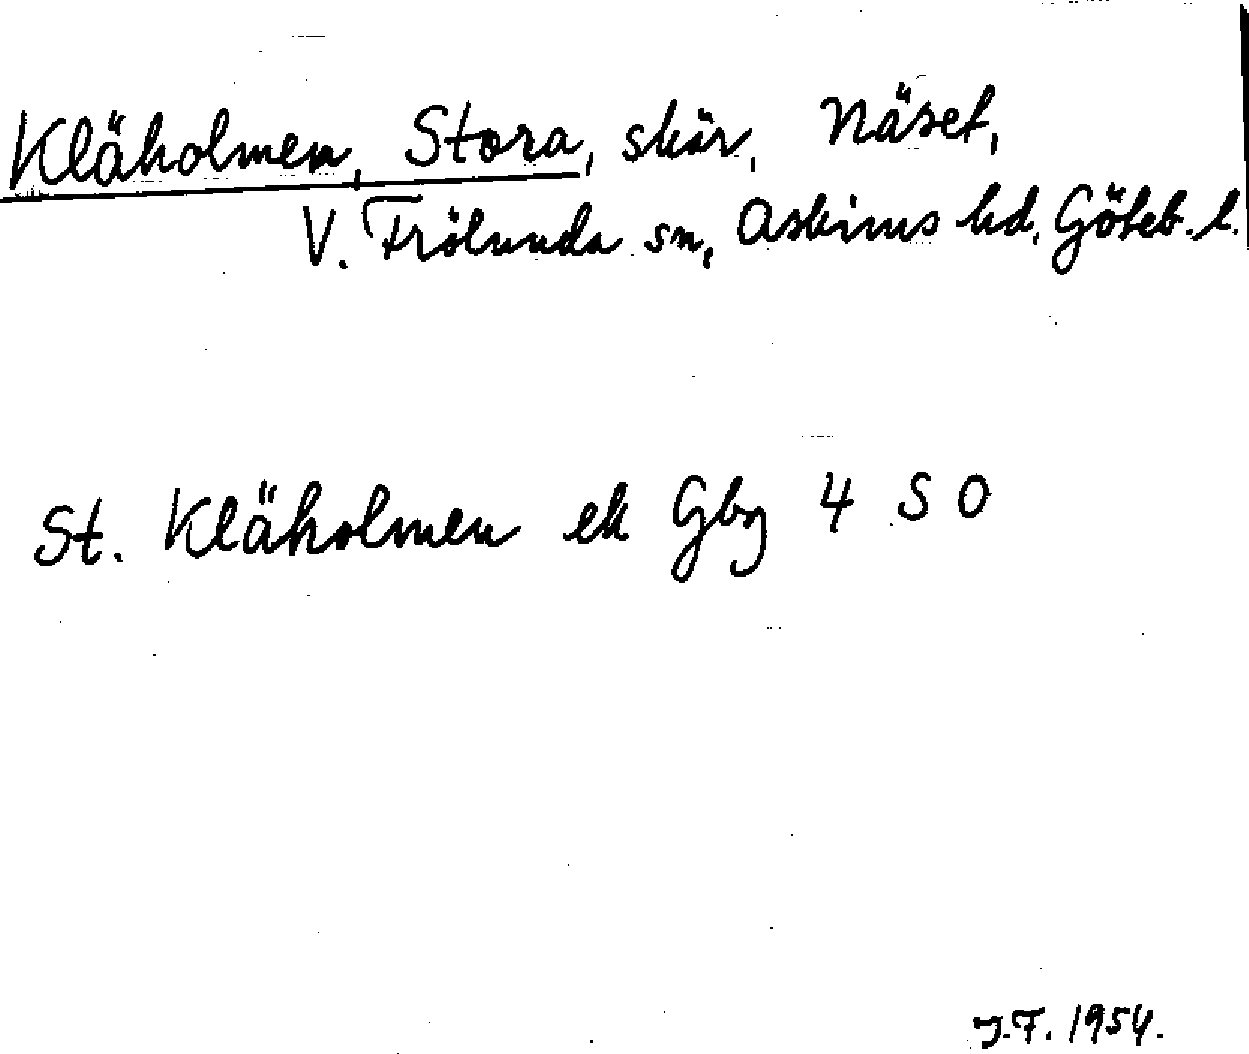 Kläholmen, Stora, skär, Näset,
V. Frölunda sn, Askims hd, Göteb. l.
St. Kläholmen ek Gbg 4 SO
J.F. 1954.